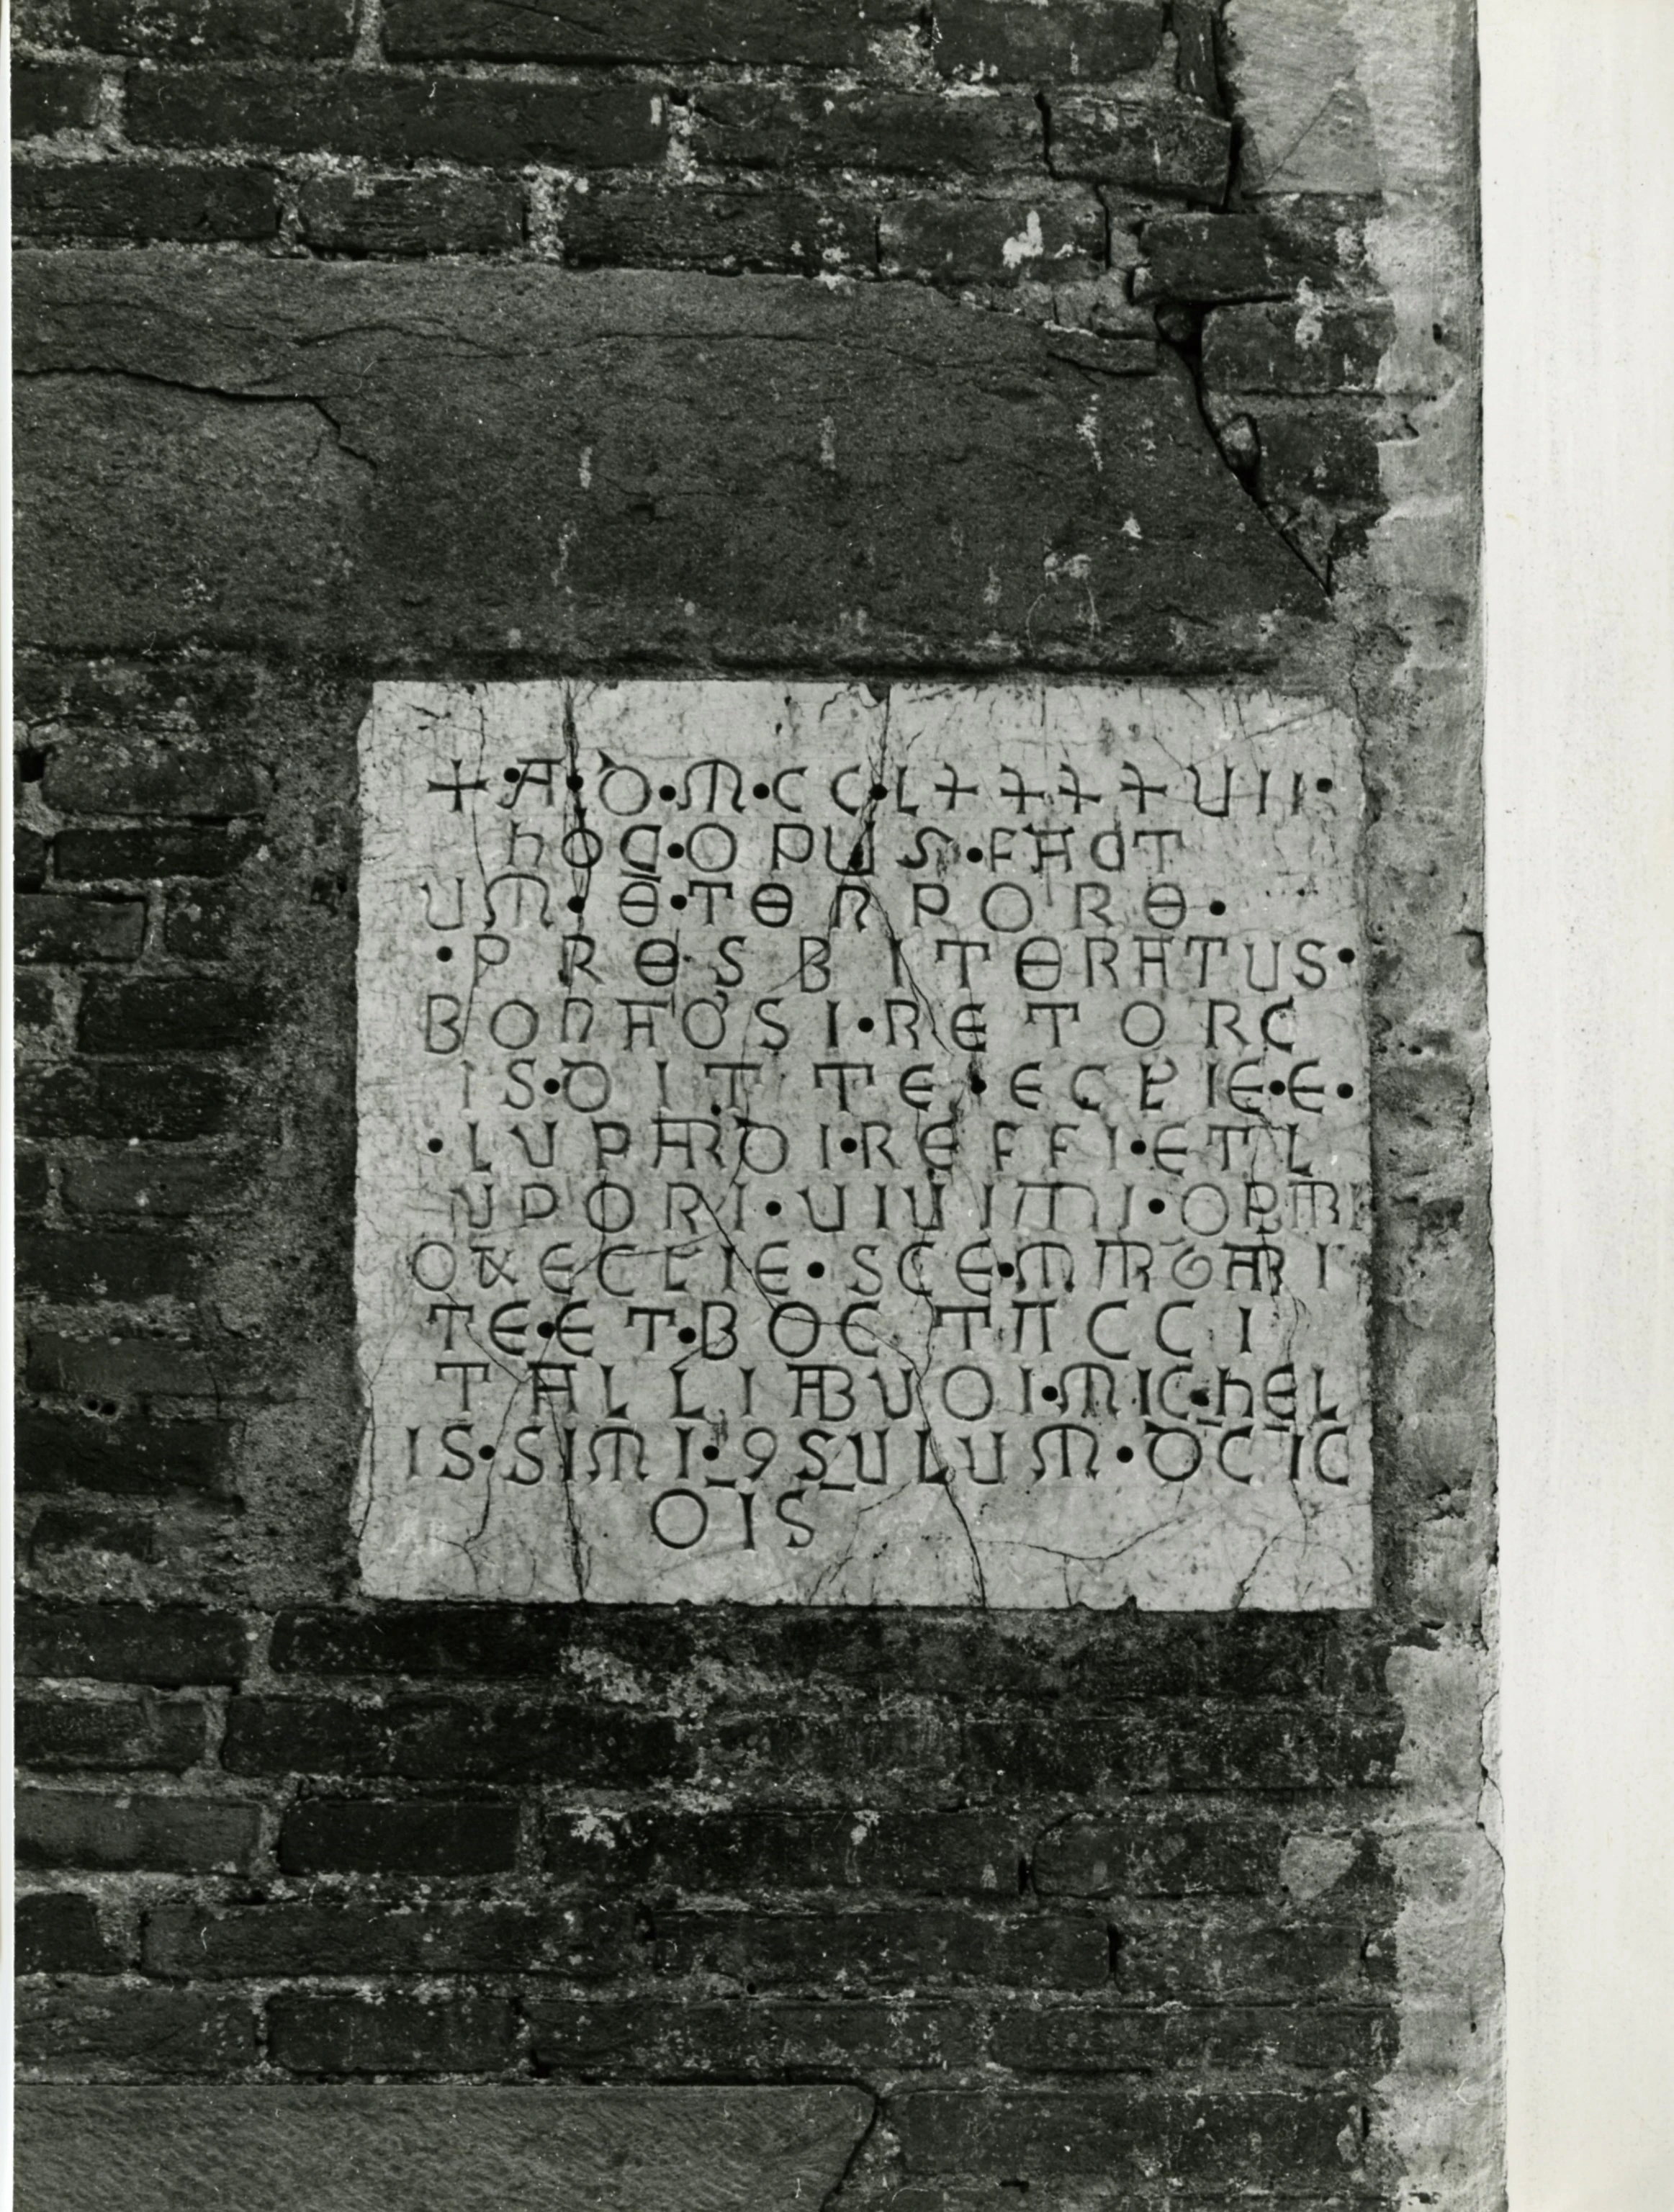 +·A·D·M·CC·L++++UII·
hOC·OPUS·FACT
UM·E·TENPORE·
·PRESBITERATUS·
BONACOSI·RETORC
IS·DITTE·ECLIE·E·
·LUPARDI·REFFI·ET L
UPORI·UIUIMI·OPARI
O&ECLIE·SCE·MARGARI
TE·ET·BOETACCI
TALLIABUOI·MICHEL
IS·SIMI·9SULUM·DCIC
OIS